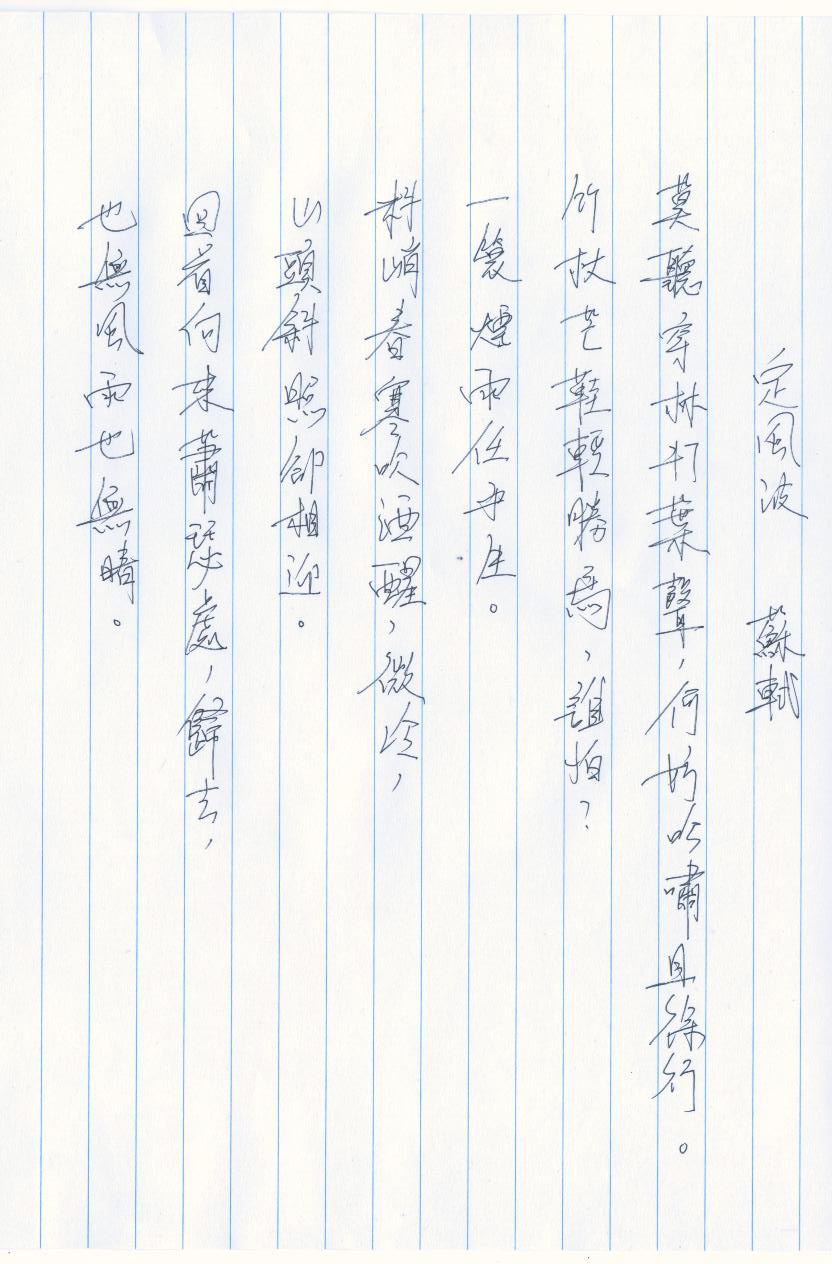 定風波 蘇軾
莫聽穿林打葉聲,何妨吟嘯且徐行。
竹杖芒鞋輕勝馬,誰怕?
一簑煙雨任平生。
料峭春寒吹酒醒,微冷,
山頭斜照卻相迎。
回首向來蕭瑟處,歸去,
也無風雨也無晴。